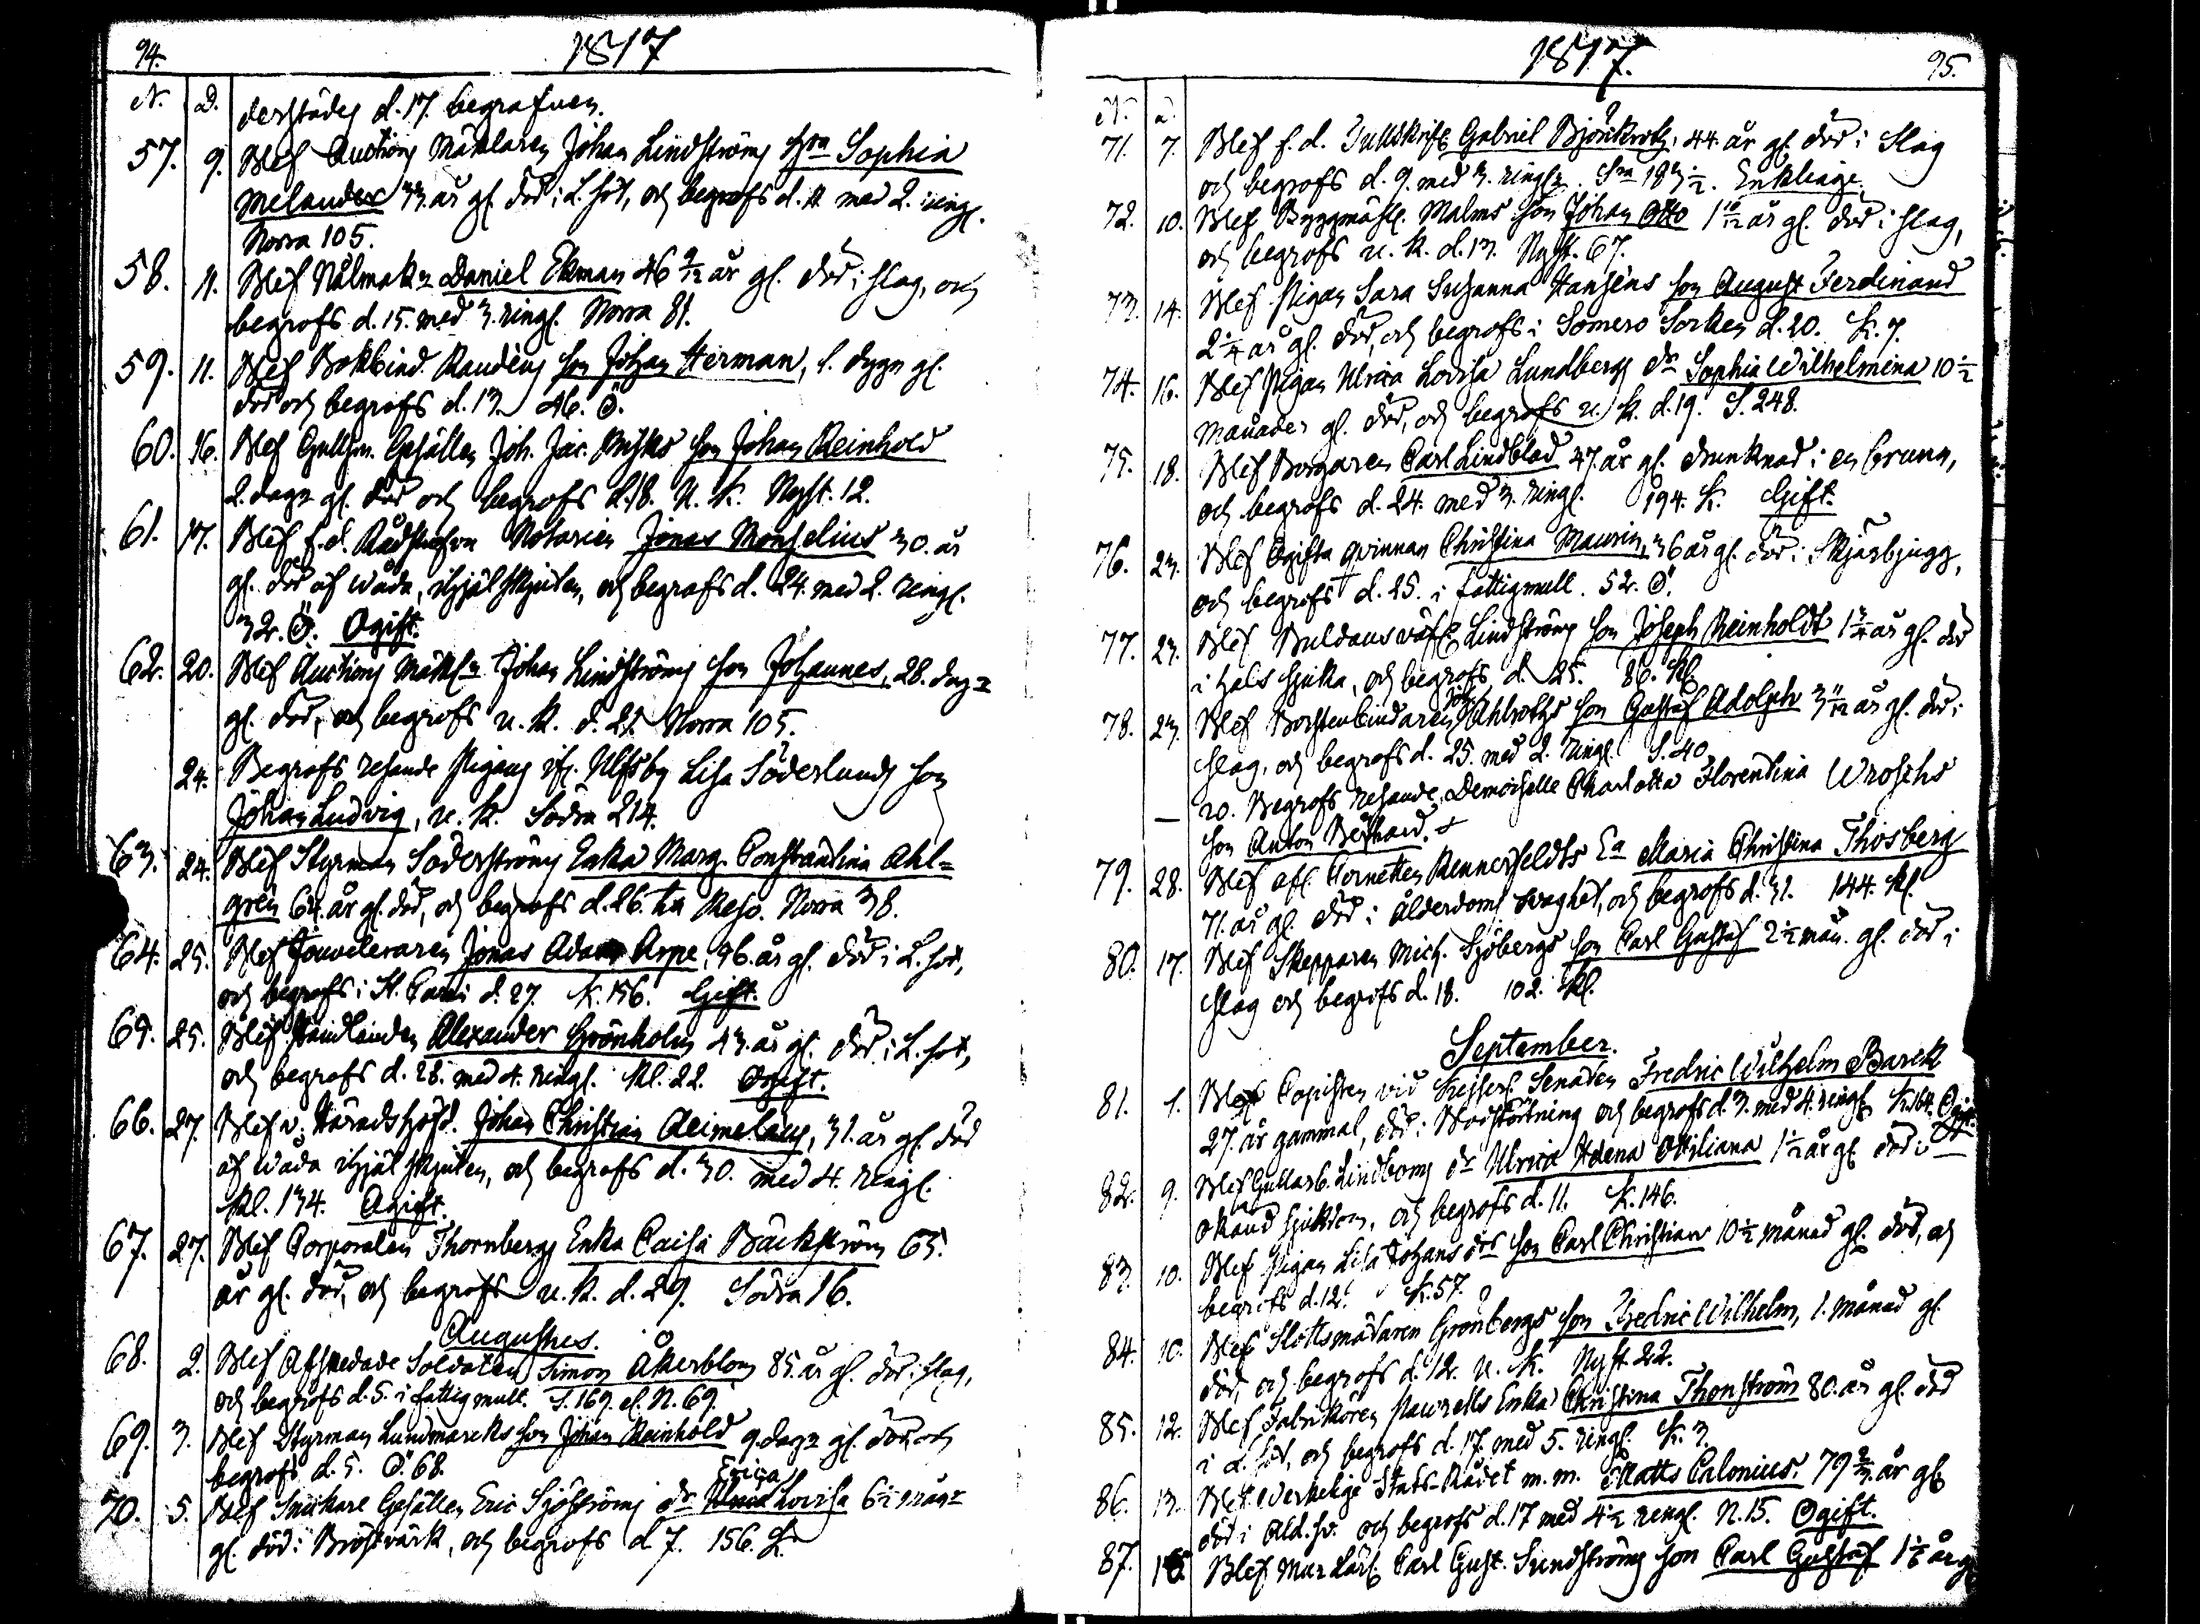 94.
1817
N. D.
derstädes d. 17. begrafven.
57. 9. Blef Auctions Mäklaren Johan Lindströms hu Sophia
Melander 33. år gl. död i L. sot, och begrofs d. med 2. ringl.
Norra 105.
58. 11. Blef Nålmak:n Daniel Ekman 46 9/12 år gl. död i slag, och
begrofs d. 15. med 3. ringl. Norra 81.
59. 11. Blef Bokbind. Randéns son Johan Herman, 1. dygn gl.
död och begrofs d. 13. 46. Ö.
60. 16. Blef Gullsm. Gesällen Joh. Jac. son Johan Reinhold
2. dagr gl. död och begrofs d. 18. u. k. Nyst. 12.
61. 17. Blef f. d. Notarien Jonas Monselius 30. år
gl. död af våda, ihjälskjuten, och begrofs d. 24. med 2. ringl.
32. Ö. Ogift.
62. 20. Blef Auctions Mäkl:n Johan Lindströms son Johannes, 28. dagr
gl. död, och begrofs u. k. d. 21. Norra 105.
24. Begrofs resande Pigans ifr. Ulfsby Lisa Söderlunds son
Johan Ludvig, u. k. Södra 214.
63. 24. Blef Styrman Söderströms Enka Marg. Constantina Ahl=
gren 64. år gl. död, och begrofs d. 26. Norra 38.
64. 25. Blef Jouveleraren Jonas Adam Arpe, 36. år gl. död i L. sot,
och begrofs i St. Carins d. 27. K. 156. Gift.
65. 25. Blef Handlanden Alexander Grönholm 43. år gl. död i L. sot,
och begrofs d. 28. med 4. ringl. Kl. 22. Ogift.
66. 27. Blef v. Häradshöfd. Johan Christian Aeimelaus, 31. år gl. död
af våda ihjälskjuten, och begrofs d. 30. med 4. ringl.
Kl. 134. Ogift.
67. 27. Blef Corporalen Thornbergs Enka Caisa Bäckström 65.
år gl. död, och begrofs u. k. d. 29. Södra 16.
Augustus.
68. 2. Blef Afskedade Soldaten Simon Åkerblom 85. år gl. död i slag,
och begrofs d. 5. i fattigmull. S. 169. el. N. 69.
69. 3. Blef Styrman Lundmarcks son Johan Reinhold 9. dagr gl. död och
begrofs d. 5. Ö. 68.
70. 5. Blef Snickare Gesällen Eric Sjöströms dr Erica Lovisa 6 1/2 mån:r
gl. död i Bröstvärk, och begrofs d 7. 156. K.
1817.
95.
N. D.
71. 7. Blef f. d. Tullskrif. Gabriel Björkrot, 44. år gl. död i slag
och begrofs d. 9. med 3. ringl:r. 183 1/2. Enklinge.
72. 10. Blef Byggmäst. Malms son Johan Otto 1 10/12 år gl. död i slag,
och begrofs u. k. d. 13. Nyst. 67.
73. 14. Blef Pigan Sara Susanna Hanséns son August Ferdinand
2 1/4 år gl. död, och begrofs i Somero Socken d. 20. K. 7.
74. 16. Blef Pigan Ulrica Lovisa Lundbergs dr Sophia Wilhelmina 10 1/2
månader gl. död, och begrofs u. k. d. 19. S. 248.
75. 18. Blef Borgaren Carl Lindblad 47. år gl. drunknad i en brunn,
och begrofs d. 24. med 3. ringl. 194. K. Gift.
76. 23. Blef Ogifta qvinnan Christina Maurin, 36 år gl. död i Skjärbjugg,
och begrofs d. 25. i fattigmull. 52. Ö.
77. 23. Blef Lindströms son Joseph Reinholdt 1 3/4 år gl. död
i halssjuka, och begrofs d. 25. 86. Kl.
78. 23. Blef Borstenbindaren Joh. Ahlroths son Gustaf Adolph 3 11/12 år gl. död i
slag, och begrofs d. 25. med 2. ringl. S. 40
— 20. Begrofs resande Demoiselle Charlotta Florentina Wroschs
son Anton Bernhard.
79. 28. Blef afl. Cornetten Rennerfeldts Ea Maria Christina Thosberg
71. år gl. död i ålderdoms svaghet, och begrofs d. 31. 144. Kl.
80. 17. Blef Skepparen Mich. Sjöbergs son Carl Gustaf 2 1/2 mån. gl. död i
slag och begrofs d. 18. 102. Kl.
September.
81. 1. Blef Copisten vid Kejserl. Senaten Fredric Wilhelm Barck
27. år gammal, död i Blodstörtning och begrofs d. 3. med 4. ringl. K. 164. Ogift.
82. 9. Blef Gullarb. Lindboms dr Ulrica Adena Ottiliana 1 1/2 år gl. död i
okänd sjukdom, och begrofs d. 11. K. 146.
83. 10. Blef Pigan Lisa Johansdrs son Carl Christian 10 1/2 månad gl. död, och
begrofs d. 12. K. 57.
84. 10. Blef Grönbergs son Fredric Wilhelm, 1. månad gl.
död, och begrofs d. 12. u. k. Nyst. 22.
85. 12. Blef Fabrikören Enka Christina Thonström 80. år gl. död
i L. sot, och begrofs d. 17. med 5. ringl. K. 3.
86. 13. Blef Verkelige Stats-Rådet m. m. Matts Calonius. 79 2/3. år gl.
död i åld.sv. och begrofs d. 17 med 4 1/2 ringl. N. 15. Ogift.
87. 16 Blef Murlärl. Carl Gust. Sundströms son Carl Gustaf 1 1/6 år gl